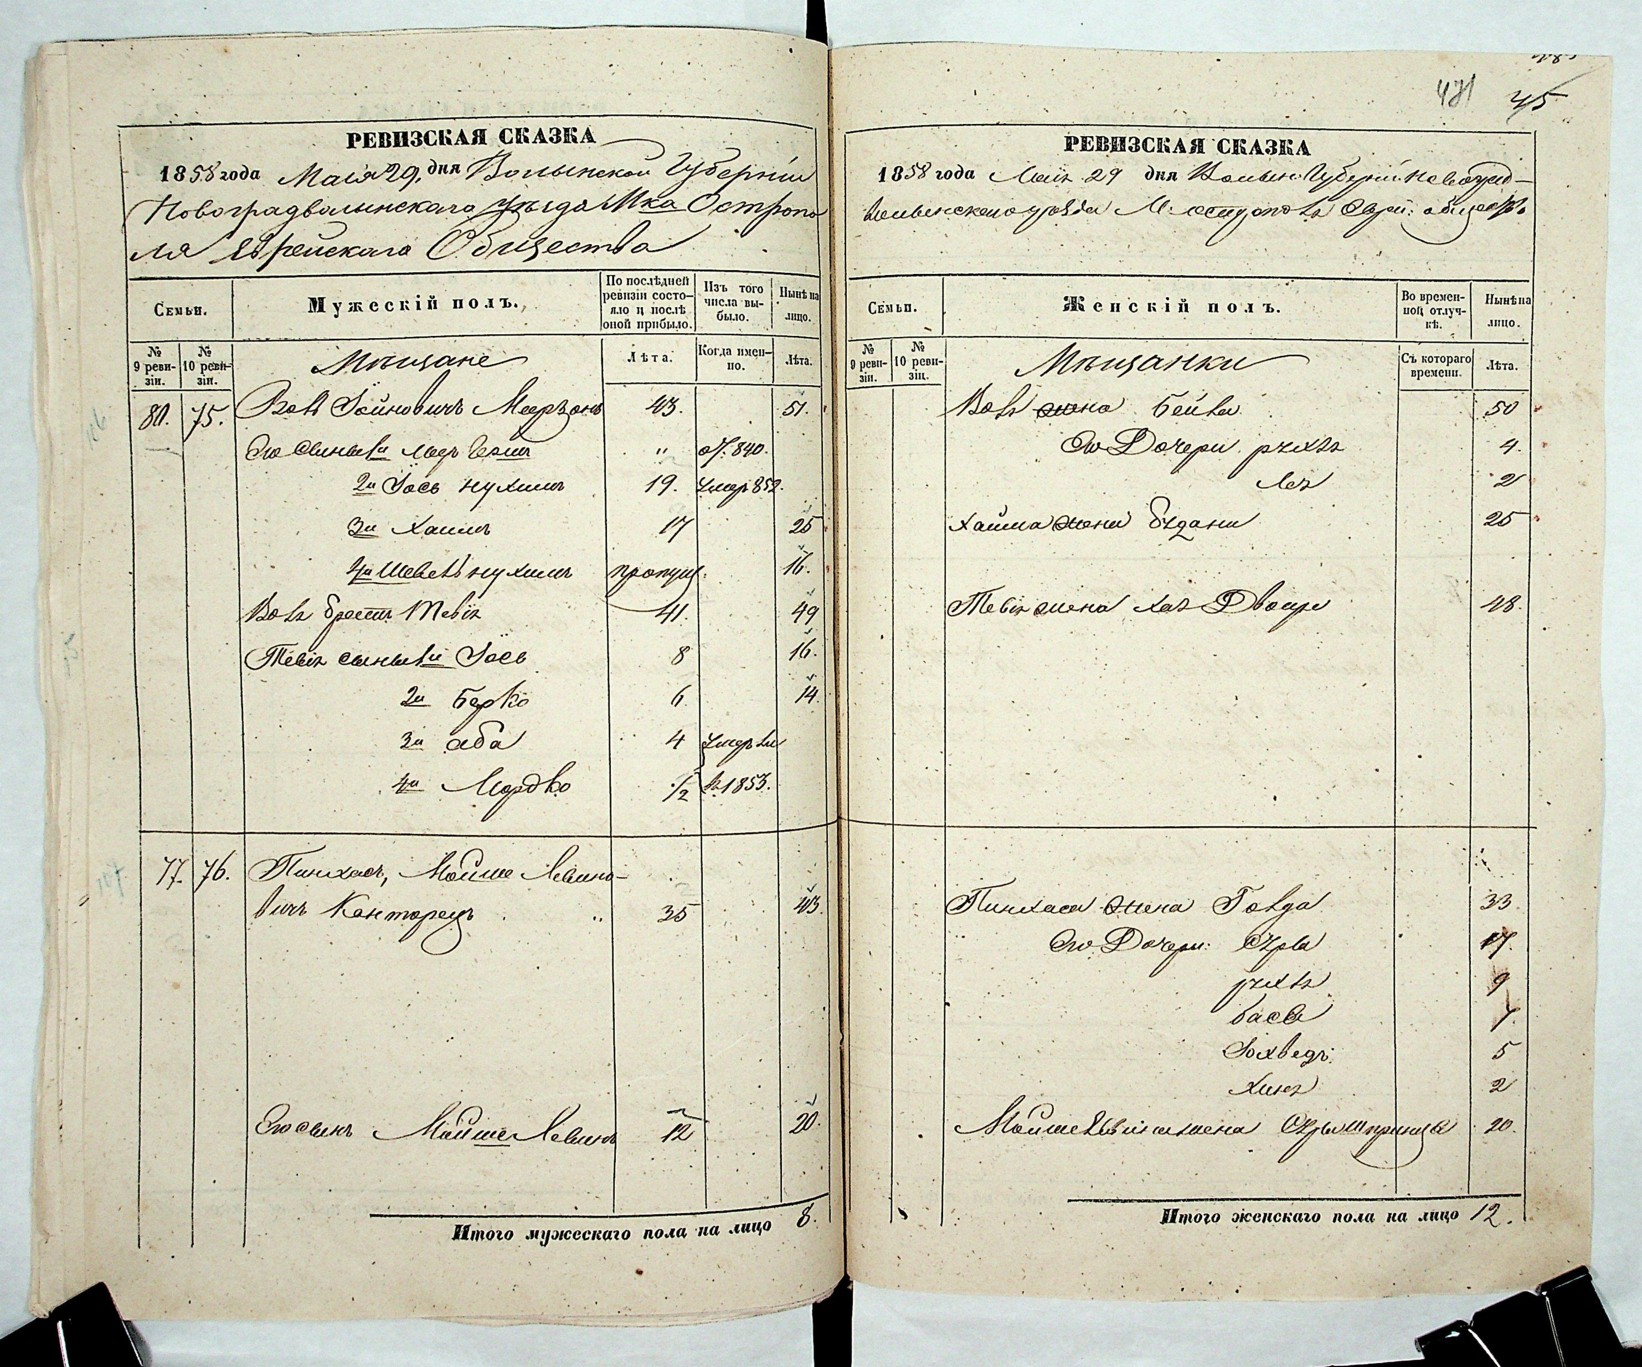 РЕВИЗСКАЯ СКАЗКА
1858 года Маія 29, дня Волынской Губерніи
Новоградволынскаго уѣзда Мка Остропо
ля Еврейскаго Общества
Семьи.
Мужескій полъ.
По послѣдней ревизіи состояло и послѣ оной прибыло.
Изъ того числа выбыло.
Нынѣ на лицо.
№ 9 ревизіи.
№ 10 ревизіи.
Мѣщане
Лѣта.
Когда именно.
Лѣта.
80. 75. Вовъ Іойновичъ Меерзонъ 43. 51.
Его сыновья „ 840.
2й Іось Нухимъ 19. умер 852.
3й Хаимъ 17 25
4й Шевель Нухимъ пропущ. 16.
Вовъ братъ Тевія 41. 49
Тевія сыновья Іось 8 16.
2й Берко 6 14.
3й Аба 4 умерли
4й Мордко 1/2 в 1853.
77. 76. Пинхасъ, Мойше Левино-
вичъ Канторець „ 35 43.
Его сынъ Мойше Левинъ 12 20.
Итого мужескаго пола на лицо 8.
471 45
РЕВИЗСКАЯ СКАЗКА
1858 года Маія 29 дня Волын. Губерніи Новоград-
волынскаго уѣзда М. Острополя Еврей: общества
Семьи.
Женскій полъ.
Во временной отлучкѣ.
Нынѣ на лицо.
№ 9 ревизіи.
№ 10 ревизіи.
Мѣщанки
Съ котораго времени.
Лѣта.
Вова жена Бейла 50
Его Дочери Рухля 4.
Лея 2
Хаима жена 25
Тевія жена Хая Двойра 48.
Пинхаса жена Голда 33
Его Дочери: Сура 17.
Рухля 9
Бася 7.
Іохведъ 5
Хиня 2
Мойше Левина жена Сура Шпринца 20.
Итого женскаго пола на лицо 12.